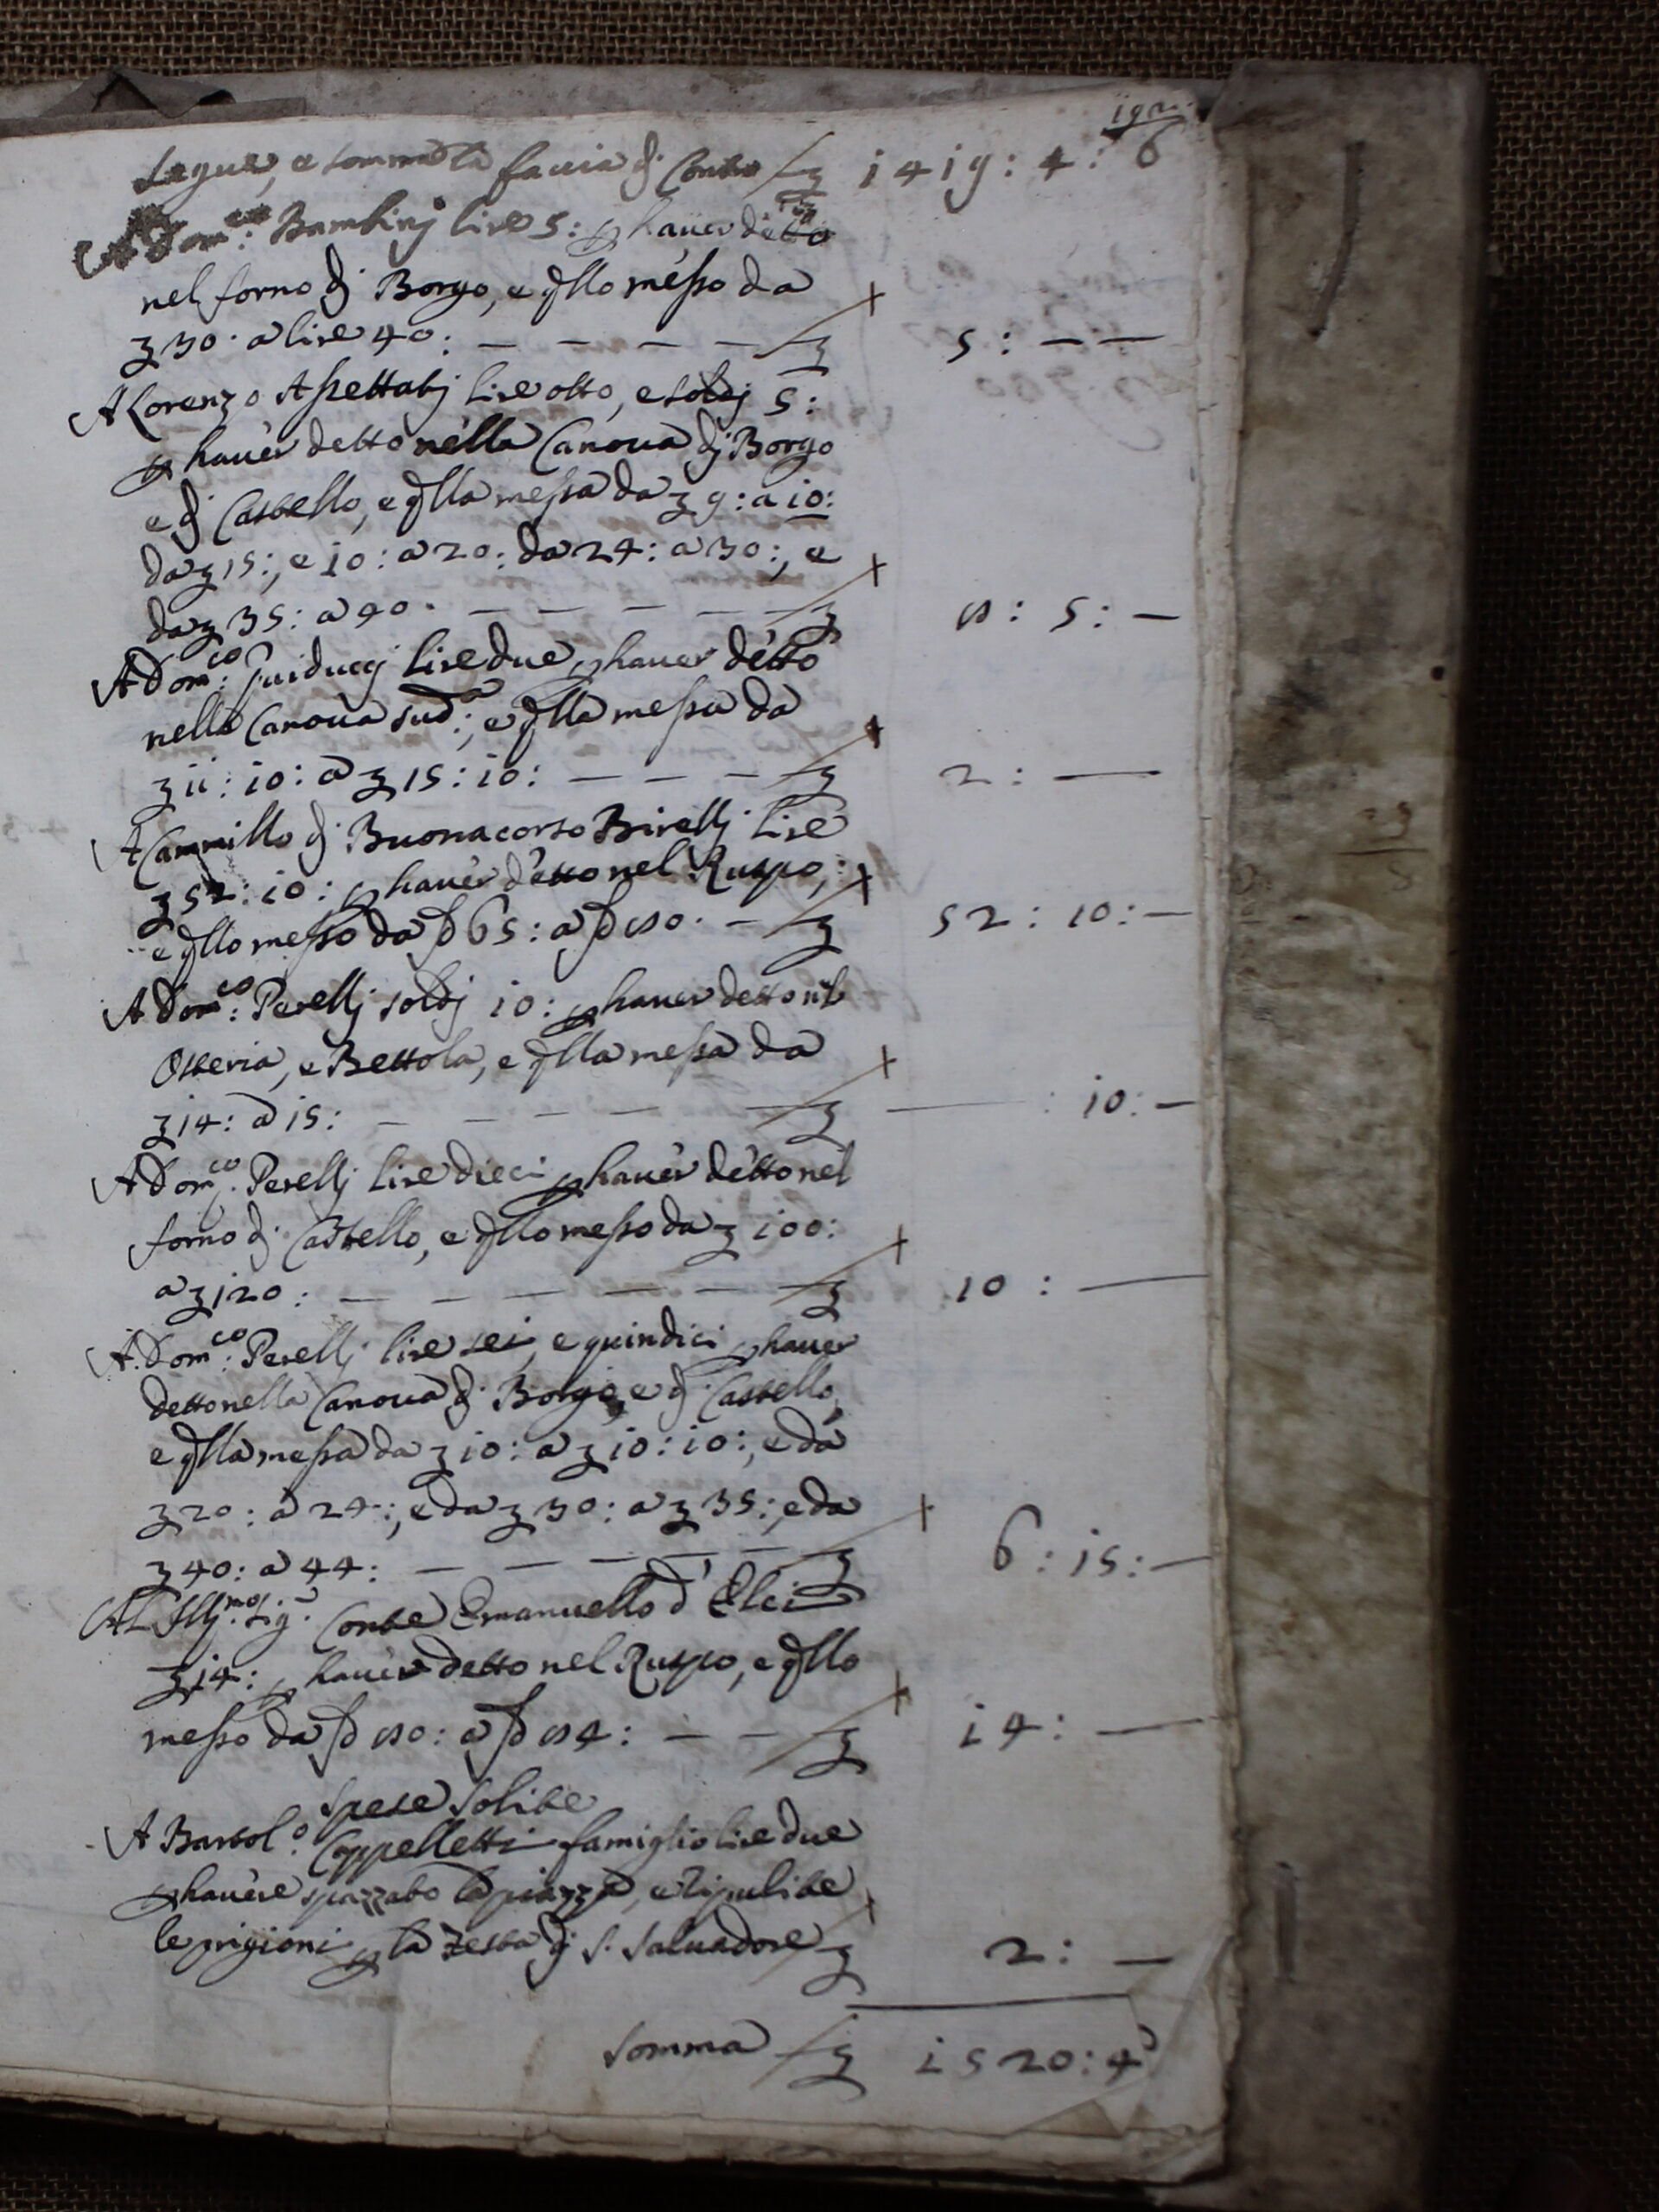 Segue, e somma la faccia dj Contro £ 1419: 4: 6
A Dom.co Bambinj lire 5: p hauer detto
nel forno dj Borgo, e qllo messo da
£ 30. a lire 40: — — — — £ 5: — —
A Lorenzo Aspettatj lire otto, e soldj 5:
p hauer detto nella Canoua dj Borgo
e dj Castello, e qlla messa da £ 9: a 10:
da £ 15:, e 10: a 20: da 24: a 30:, e
da £ 35: a 40. — — — — — £ 8: 5: —
A Dom.co Guiduccj lire due p hauer detto
nella Canoua sud.a, e qlla messa da
£ 11: 10: a £ 15: 10: — — — £ 2: —
A Cammillo dj Buonacorso Birellj lire
£ 52: 10: p hauer detto nel Ruspo,
e qllo messo da 65: a 80. — £ 52: 10: —
A Dom.co Perellj soldj 10: p hauer detto nel
Osteria, e Bettola, e qlla messa da
£ 14: a 15: — — — — — £ — : 10: —
A Dom.co Perellj lire dieci p hauer detto nel
forno dj Castello, e qllo messo da £ 100:
a £ 120: — — — — — — £ 10: —
A Dom.co Perellj lire sei, e quindici p hauer
detto nella Canoua dj Borgo, e dj Castello,
e qlla messa da £ 10: a £ 10: 10:, e da
£ 20: a 24:, e da £ 30: a £ 35:, e da
£ 40: a 44: — — — — — £ 6: 15: —
Al Illj.mo Sig.r Conte Emanuello d'Elci
£ 14: p hauer detto nel Ruspo, e qllo
messo da 80: a 84: — — £ 14: —
Spese Solite
A Bartol.o Cappelletti famiglio lire due
p hauere spazzato la piazza, e ripulite
le prigioni p la Festa dj S. Saluadore £ 2: —
Somma £ 1520: 4